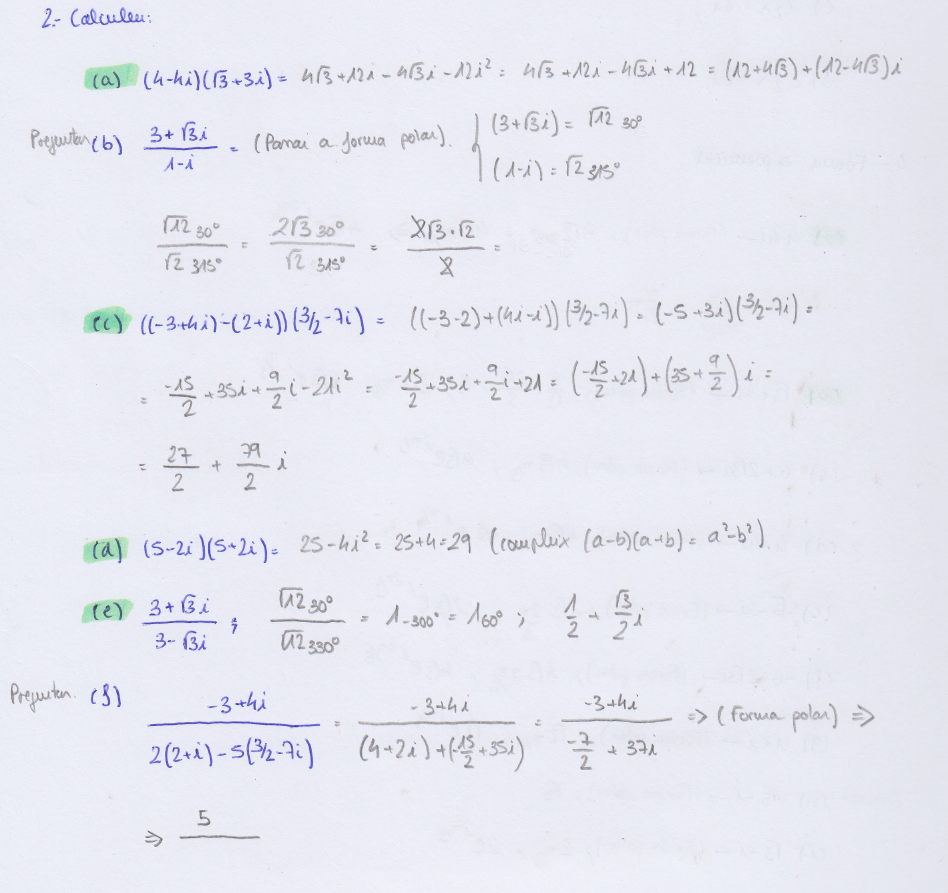 2.- Calculeu:
(a) (4-4i)(√3+3i) = 4√3+12i-4√3i-12i² = 4√3+12i-4√3i+12 = (12+4√3)+(12-4√3)i
Preguntar (b) (3+√3i)/(1-i) = (Passar a forma polar). { (3+√3i) = √12 30°
(1-i) = √2 315°
(√12 30°)/(√2 315°) = (2√3 30°)/(√2 315°) = (2√3·√2)/2 =
(c) ((-3+4i)-(2+i))(3/2-7i) = ((-3-2)+(4i-i))(3/2-7i) = (-5+3i)(3/2-7i) =
= -15/2+35i+9/2i-21i² = -15/2+35i+9/2i+21 = (-15/2+21)+(35+9/2)i =
= 27/2 + 79/2 i
(d) (5-2i)(5+2i) = 25-4i² = 25+4=29 (compleix (a-b)(a+b) = a²-b²)
(e) (3+√3i)/(3-√3i) ; (√12 30°)/(√12 330°) = 1 -300° = 1 60° ; 1/2 + √3/2 i
Preguntar. (f) (-3+4i)/(2(2+i)-5(3/2-7i)) = (-3+4i)/((4+2i)+(-15/2+35i)) = (-3+4i)/(-7/2+37i) => (Forma polar) =>
=> 5